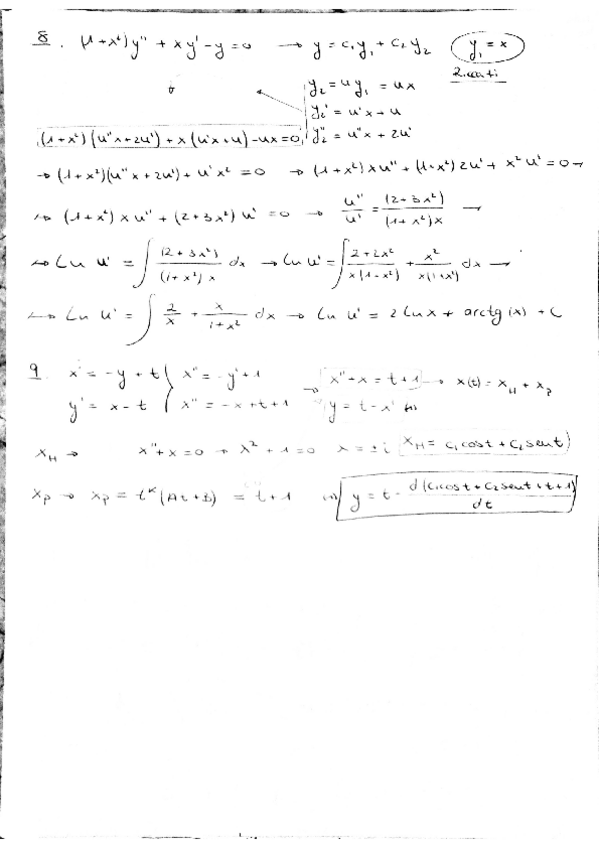 8. (1+x²)y'' + xy' - y = 0 → y = c₁y₁ + c₂y₂ y₁ = x
y₂ = uy₁ = ux
y₂' = u'x + u
(1+x²)(u''x+2u') + x(u'x+u) - ux = 0 y₂'' = u''x + 2u'
→ (1+x²)(u''x + 2u') + u'x² = 0 → (1+x²)xu'' + (1+x²)2u' + x²u' = 0 →
→ (1+x²)xu'' + (2+3x²)u' = 0 → u''/u' = (2+3x²)/(1+x²)x →
→ Ln u' = ∫ (2+3x²)/(1+x²)x dx → Ln u' = ∫ 2+2x²/x(1+x²) + x²/x(1+x²) dx →
→ Ln u' = ∫ 2/x + x/1+x² dx → Ln u' = 2Lnx + arctg(x) + C
9. x' = -y + t } x'' = -y' + 1 → x'' + x = t + 1 → x(t) = x_H + x_P
y' = x - t } x'' = -x + t + 1 y = t - x'
x_H → x'' + x = 0 → λ² + 1 = 0 λ = ±i x_H = c₁cost + c₂sent
x_P → x_P = t^k(At+B) = t+1 ⇒ y = t - d(c₁cost + c₂sent + t + 1)/dt